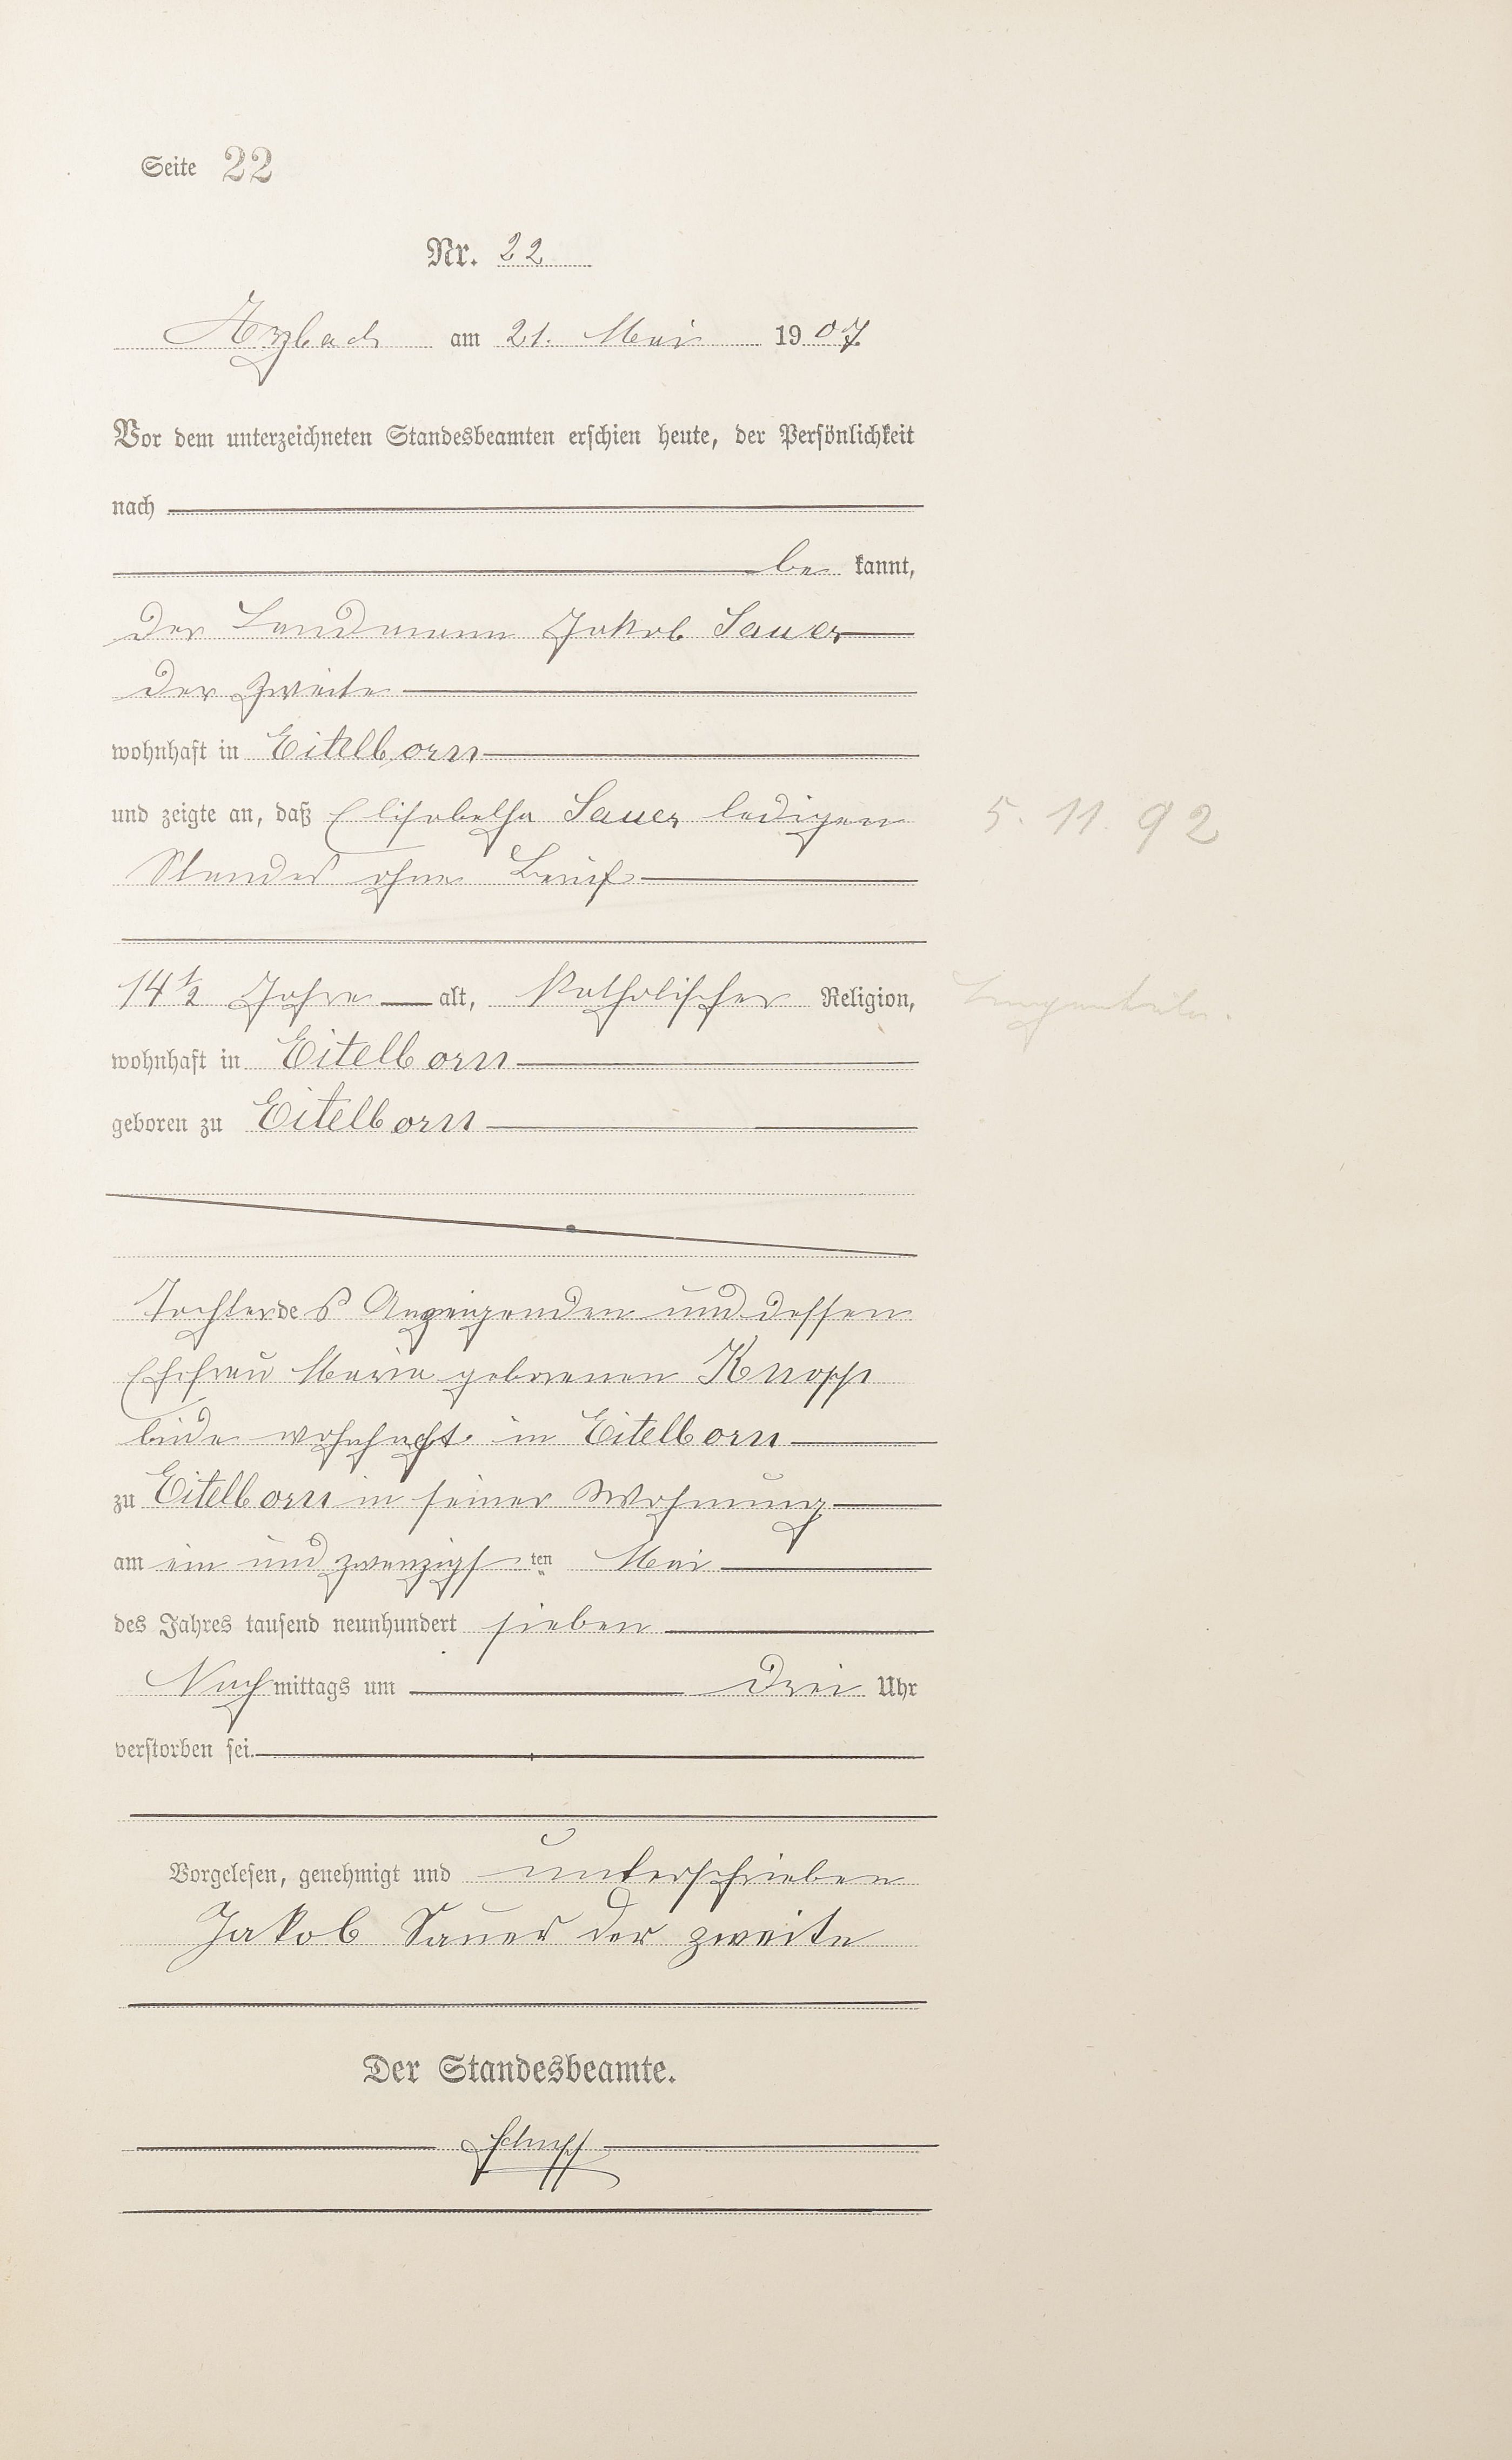 Seite 22
Nr. 22
Arzbach am 21. Mai 1907
Vor dem unterzeichneten Standesbeamten erschien heute, der Persönlichkeit
nach
be kannt,
der Landmann Jakob Sauer
der Zweite
wohnhaft in Eitelborn
und zeigte an, daß Elisabetha Sauer ledigen
5. 11. 92
Standes ohne Beruf
14 1/2 Jahre alt, katholischer Religion,
wohnhaft in Eitelborn
geboren zu Eitelborn
Tochter des Anzeigenden und dessen
Ehefrau Maria geborenen Knopp
beide wohnhaft in Eitelborn
zu Eitelborn in seiner Wohnung
am ein und zwanzigsten Mai
des Jahres tausend neunhundert sieben
Nachmittags um drei Uhr
verstorben sei.
Vorgelesen, genehmigt und unterschrieben
Jakob Sauer der zweite
Der Standesbeamte.